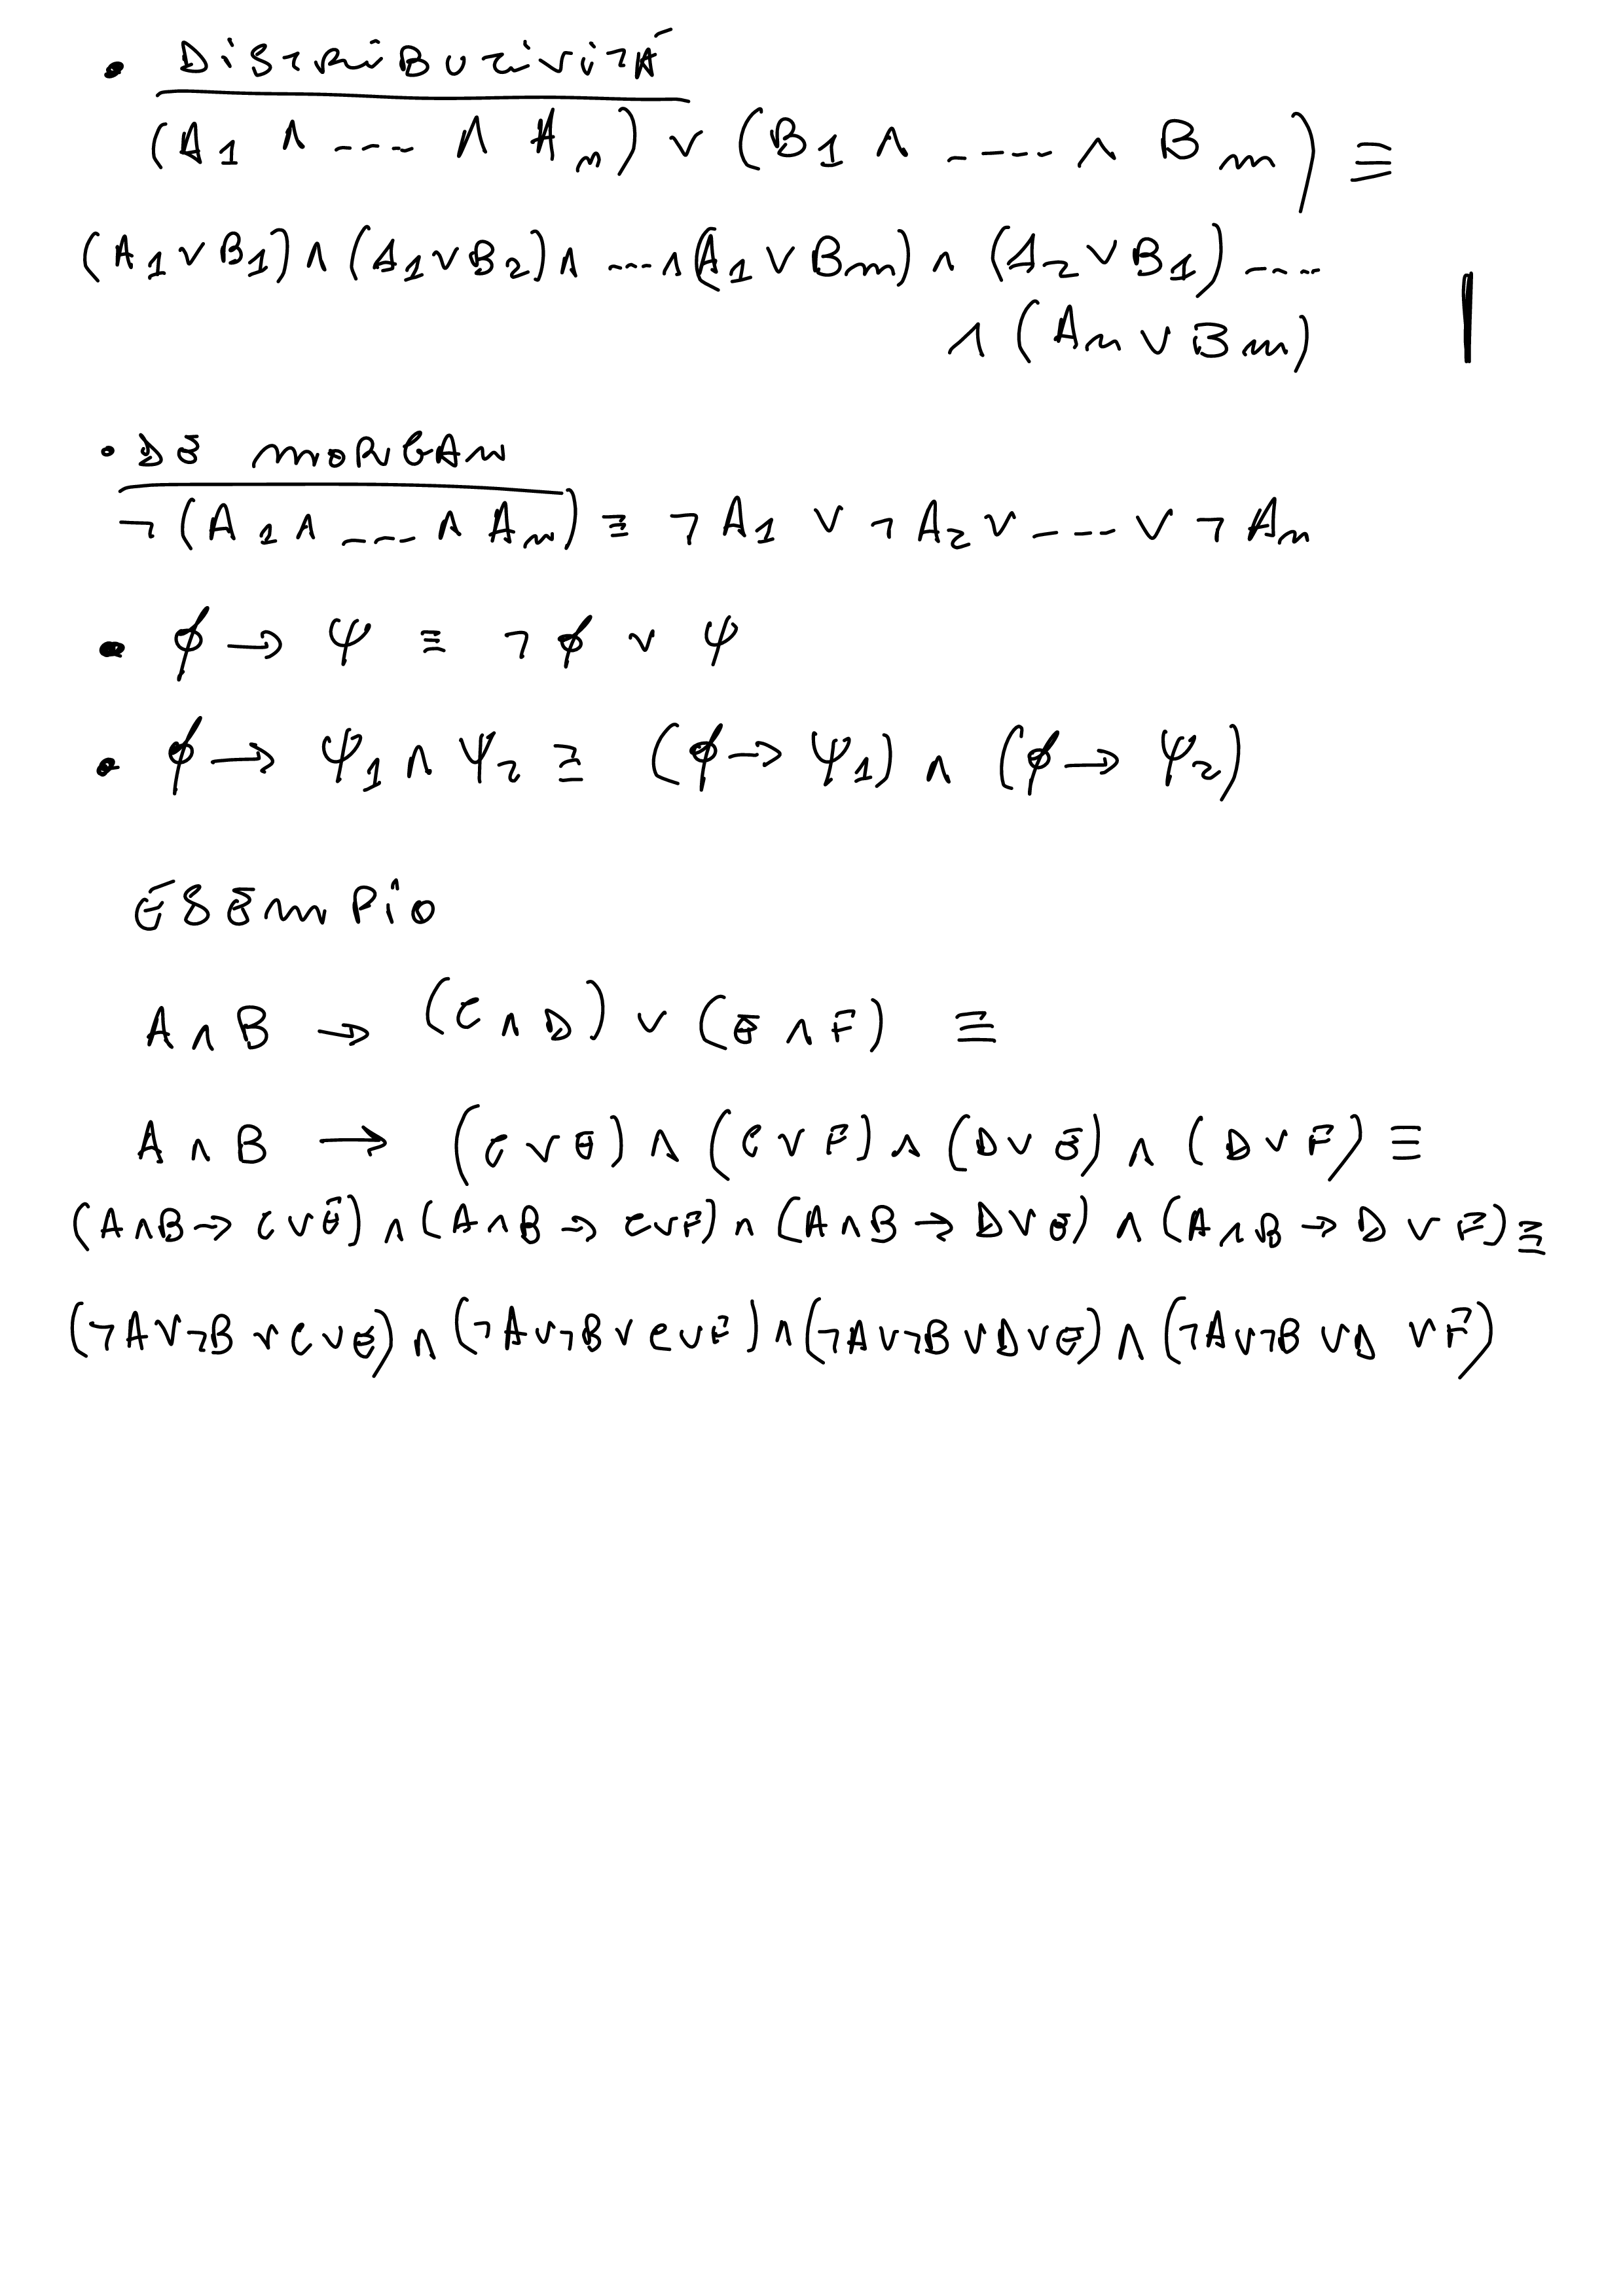 • DISTRIBUTIVITÁ
(A₁ ∧ ---- ∧ Aₙ) ∨ (B₁ ∧ ----- ∧ Bₘ) ≡
(A₁ ∨ B₁) ∧ (A₁ ∨ B₂) ∧ ---- ∧ (A₁ ∨ Bₘ) ∧ (A₂ ∨ B₁) ----
∧ (Aₙ ∨ Bₘ)
• DE MORGAN
¬ (A₁ ∧ ---- ∧ Aₙ) ≡ ¬ A₁ ∨ ¬ A₂ ∨ ---- ∨ ¬ Aₙ
• ϕ → ψ ≡ ¬ ϕ ∨ ψ
• ϕ → ψ₁ ∧ ψ₂ ≡ (ϕ → ψ₁) ∧ (ϕ → ψ₂)
ESEMPIO
A ∧ B → (C ∧ D) ∨ (E ∧ F) ≡
A ∧ B → (C ∨ E) ∧ (C ∨ F) ∧ (D ∨ E) ∧ (D ∨ F) ≡
(A ∧ B → C ∨ E) ∧ (A ∧ B → C ∨ F) ∧ (A ∧ B → D ∨ E) ∧ (A ∧ B → D ∨ F) ≡
(¬A ∨ ¬B ∨ C ∨ E) ∧ (¬A ∨ ¬B ∨ C ∨ F) ∧ (¬A ∨ ¬B ∨ D ∨ E) ∧ (¬A ∨ ¬B ∨ D ∨ F)